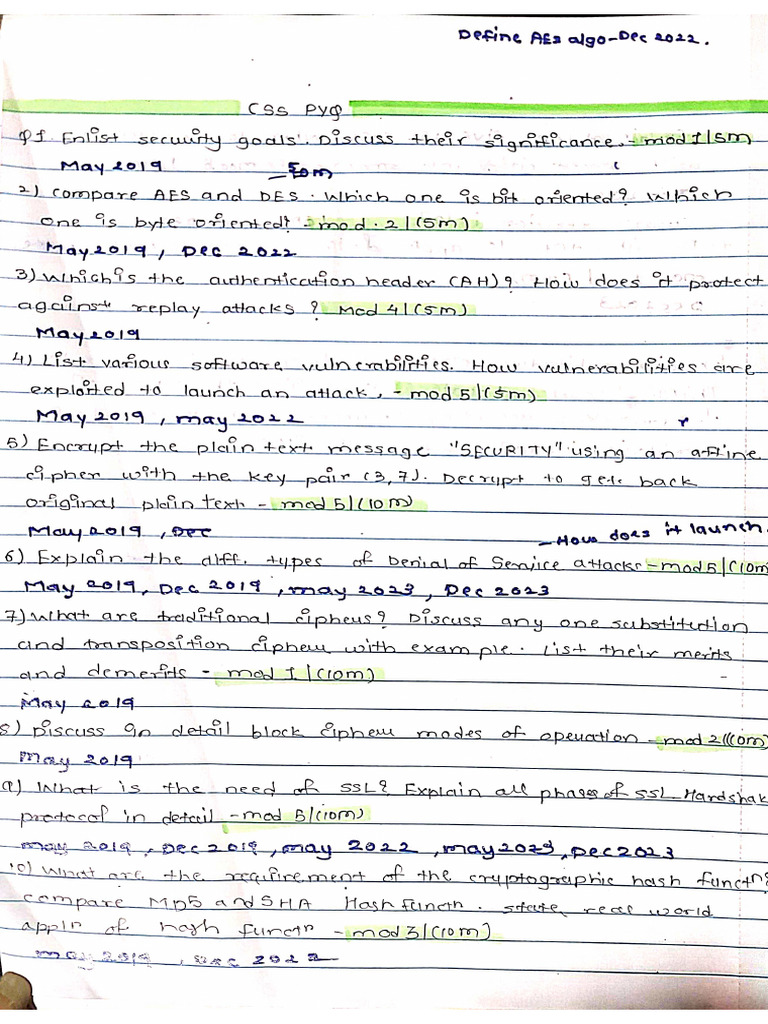 Define AES algo-Dec 2022.
CSS PYQ
Q1 Enlist security goals. Discuss their significance. - mod 1/5m
May 2019
2) Compare AES and DES. Which one is bit oriented? Which
one is byte oriented? - mod. 2/(5m)
May 2019, Dec 2022
3) Which is the authentication header (AH)? How does it protect
against replay attacks? Mod 4/(5m)
May 2019
4) List various software vulnerabilities. How vulnerabilities are
exploited to launch an attack, - mod 5/(5m)
May 2019, may 2022
5) Encrypt the plain text message "SECURITY" using an affine
cipher with the key pair (3,7). Decrypt to get back
original plain text - mod 5/(10m)
May 2019, Dec
- How does it launch.
6) Explain the diff. types of Denial of Service attacks - mod 5/(10m)
May 2019, Dec 2019, may 2023, Dec 2023
7) What are traditional ciphers? Discuss any one substitution
and transposition cipher with example. List their merits
and demerits - mod 1/(10m)
May 2019
8) Discuss in detail block cipher modes of operation - mod 2/(10m)
May 2019
9) What is the need of SSL? Explain all phases of SSL Handshak
protocol in detail - mod 5/(10m)
May 2019, Dec 2019, may 2022, may 2023, Dec 2023
10) What are the requirement of the cryptographic hash functn?
compare MD5 and SHA Hash functn. state real world
appln of hash functn - mod 3/(10m)
May 2019, Dec 2022